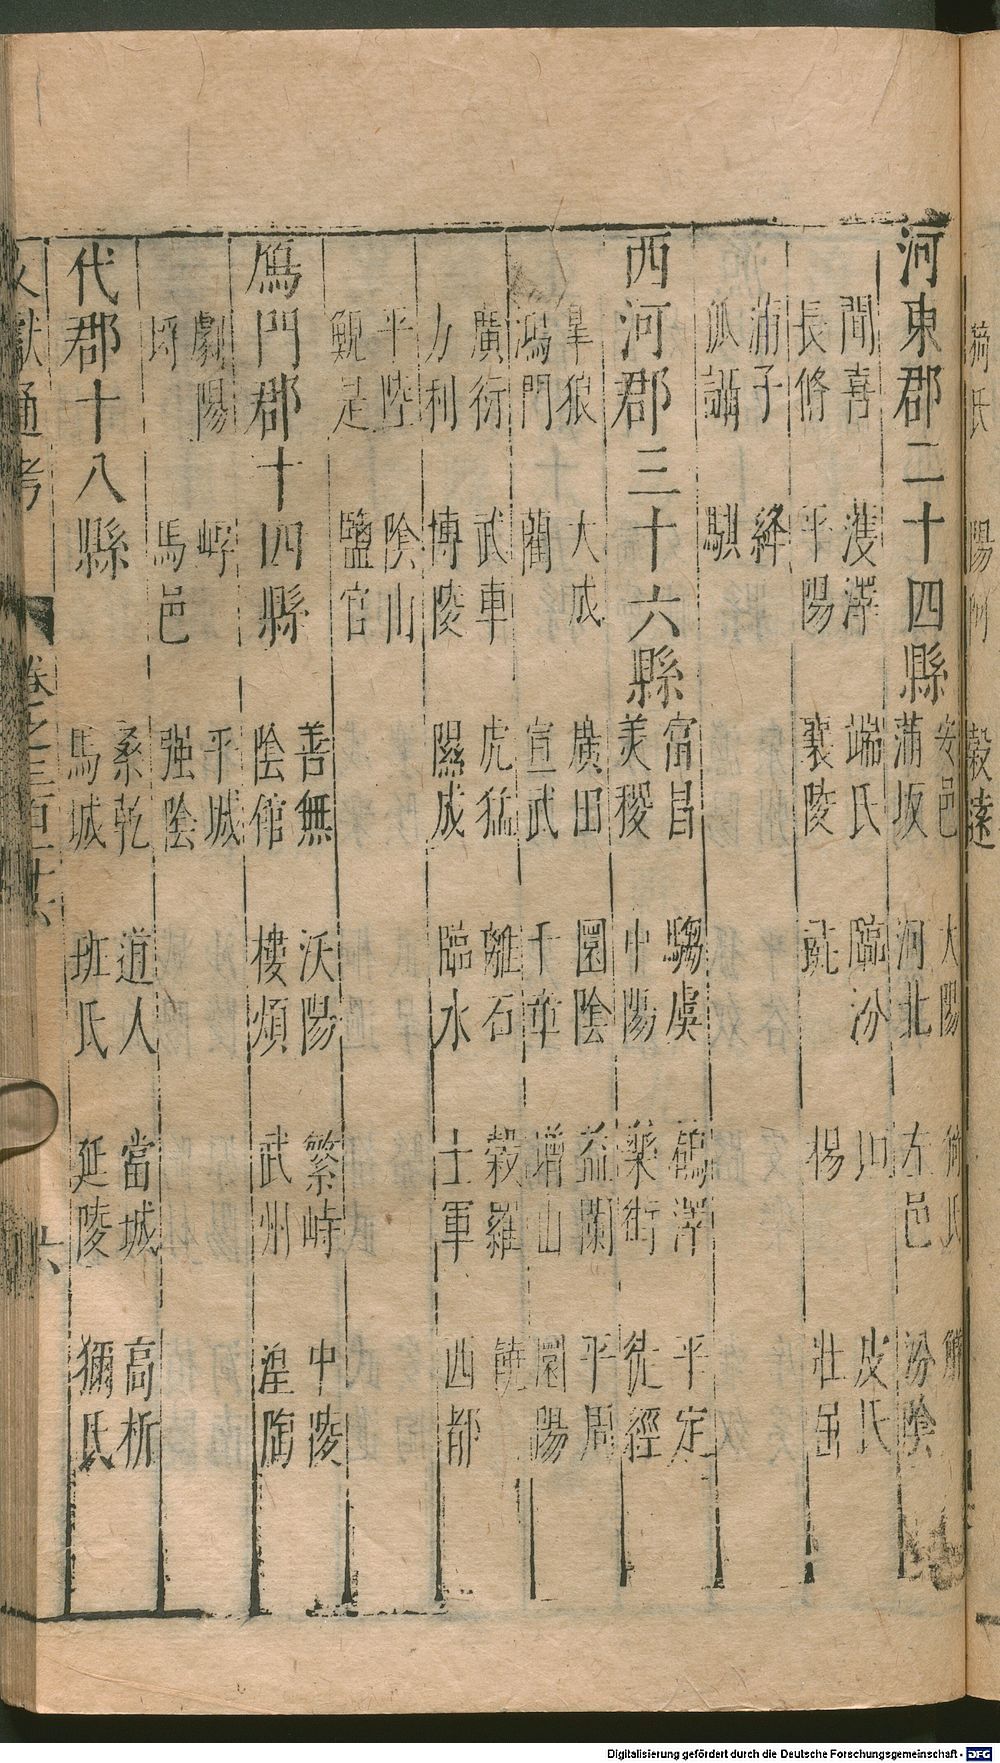 河東郡二十四縣
安邑 大陽 猗氏 解
蒲坂 河北 左邑 汾陰
聞喜 濩澤 端氏 臨汾 垣 皮氏
長脩 平陽 襄陵 彘 楊
蒲子 絳
狐讘 騏
西河郡三十六縣
富昌 騶虞 鵠澤 平定
美稷 中陽 樂街 徒經
皐狼 大成 廣田 圜陰 益闌 平周
鴻門 藺 宣武 千章 增山 圜陽
廣衍 武車 虎猛 離石 穀羅 饒
方利 博陵 隰成 臨水 土軍 西都
平陸 陰山
觬是 鹽官
鴈門郡十四縣
善無 沃陽 繁峙 中陵
陰館 樓煩 武州 湟陶
劇陽 崞 平城
埒 馬邑 强陰
代郡十八縣
桑乾 道人 當城 高柳
馬城 班氏 延陵 狋氏
文獻通考 卷之三百十六 六
猗氏 陽阿 穀遠
Digitalisierung gefördert durch die Deutsche Forschungsgemeinschaft - DFG